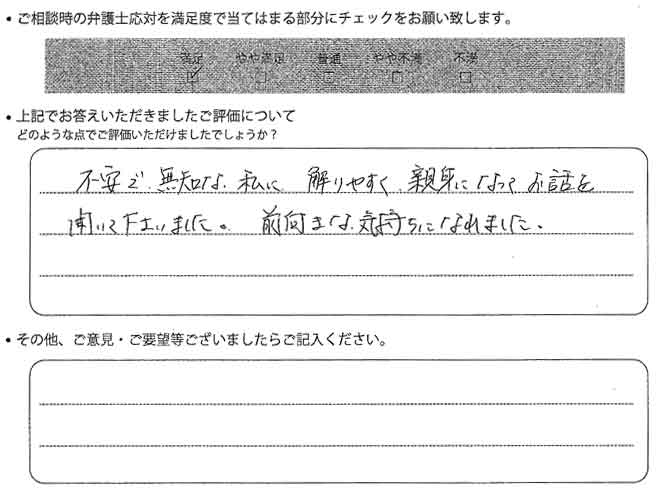 • ご相談時の弁護士応対を満足度で当てはまる部分にチェックをお願い致します。
満足 やや満足 普通 やや不満 不満
☑ □ □ □ □
• 上記でお答えいただきましたご評価について
どのような点でご評価いただけましたでしょうか？
不安で、無知な、私に、解りやすく、親身になってお話を
聞いて下さいました。前向きな気持ちになれました。
• その他、ご意見・ご要望等ございましたらご記入ください。